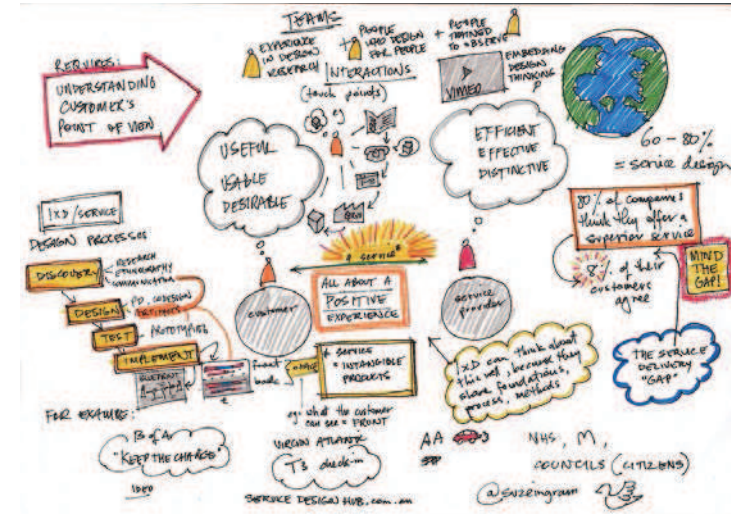 TEAMS
EXPERIENCE
IN DESIGN
RESEARCH
+ PEOPLE
WHO DESIGN
FOR PEOPLE
+ PEOPLE
TRAINED
TO OBSERVE
INTERACTIONS
(touch points)
eg
VIMEO
EMBEDDING
DESIGN
THINKING
REQUIRES:
UNDERSTANDING
CUSTOMER'S
POINT OF VIEW
USEFUL
USABLE
DESIRABLE
EFFICIENT
EFFECTIVE
DISTINCTIVE
60-80%
= service design
80% of companies
think they offer a
superior service
8% of their
customers
agree
MIND
THE
GAP!
THE SERVICE
DELIVERY
"GAP"
IXD/SERVICE
DESIGN PROCESSES
DISCOVERY
RESEARCH
ETHNOGRAPHY
COMMUNICATION
DESIGN
PD, CODESIGN
ARTIFACTS
TEST
PROTOTYPING
IMPLEMENT
BLUEPRINT
front
back
customer
service
ALL ABOUT A
POSITIVE
EXPERIENCE
service
provider
SERVICE
= INTANGIBLE
PRODUCTS
eg: what the customer
can see = FRONT
IXD can think about
this well, because they
share foundations,
process, methods
FOR EXAMPLE:
B of A
"KEEP THE CHANGE"
IDEO
VIRGIN ATLANTIC
T3 check-in
SERVICE DESIGN HUB.com.au
AA
NHS, M,
COUNCILS (CITIZENS)
@suzeingram